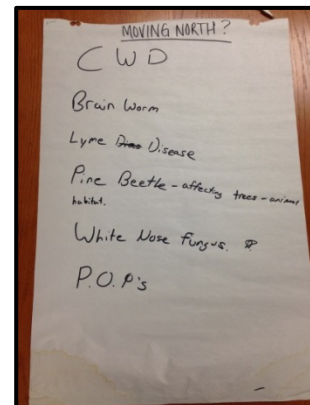 MOVING NORTH?
CWD
Brain Worm
Lyme Disease
Pine Beetle - affecting trees - animal
habitat.
White Nose Fungus.
P.O.P's